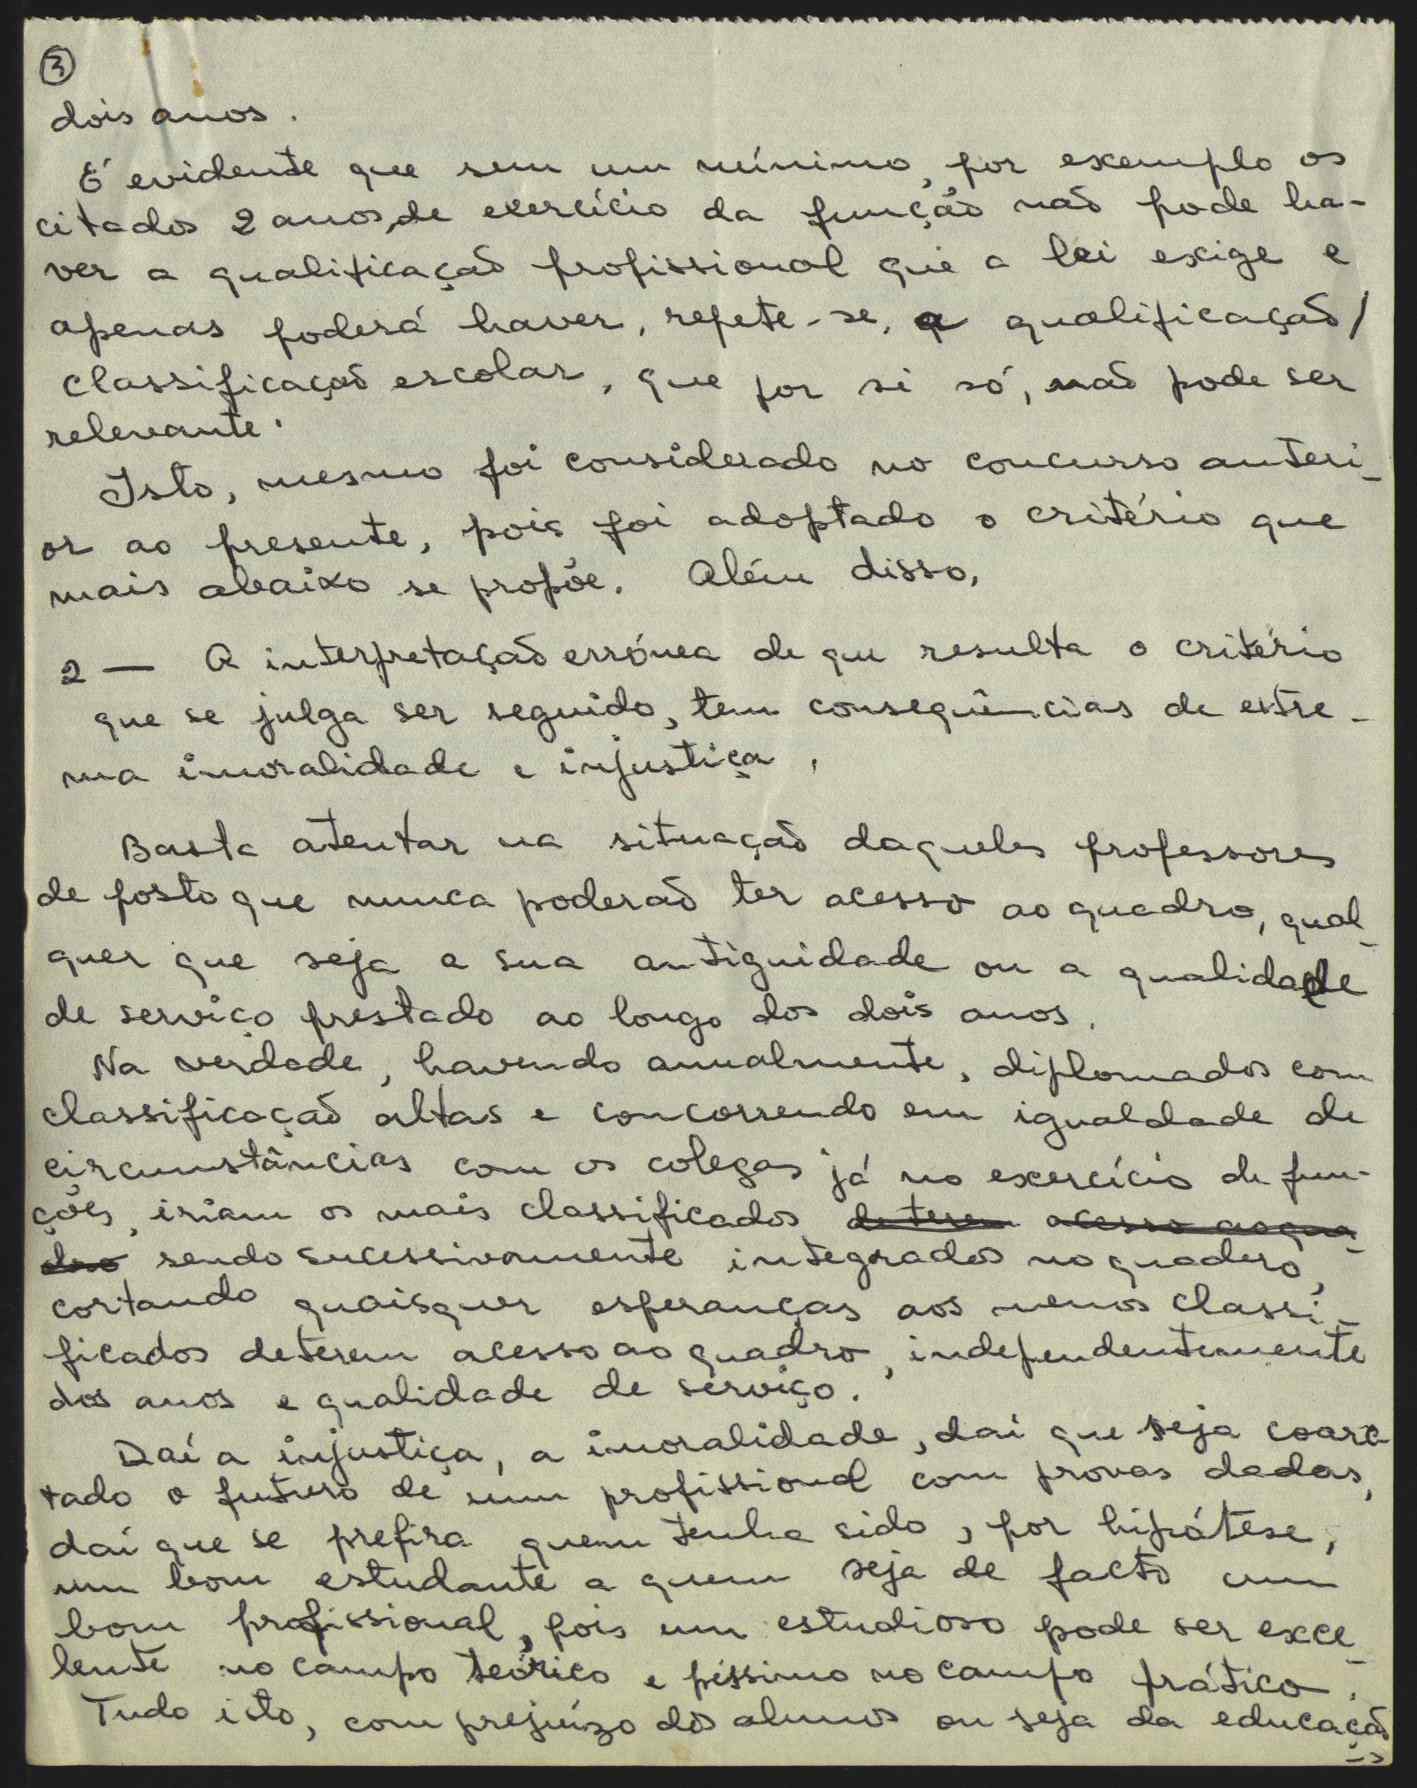 3
dois anos.
É evidente que sem um mínimo, por exemplo os
citados 2 anos, de exercício da função não pode ha-
ver a qualificação profissional que a lei exige e
apenas poderá haver, repete-se, a qualificação/
classificação escolar, que por si só, não pode ser
relevante.
Isto, mesmo foi considerado no concurso anteri-
or ao presente, pois foi adoptado o critério que
mais abaixo se propõe. Além disso,
2 — A interpretação errónea de que resulta o critério
que se julga ser seguido, tem consequências de extre-
ma imoralidade e injustiça,
Basta atentar na situação daqueles professores
de posto que nunca poderão ter acesso ao quadro, qual-
quer que seja a sua antiguidade ou a qualidade
de serviço prestado ao longo dos dois anos.
Na verdade, havendo anualmente, diplomados com
classificação altas e concorrendo em igualdade de
circunstâncias com os colegas já no exercício de fun-
ções, iriam os mais classificados de terem acesso ao qua-
dro sendo sucessivamente integrados no quadro,
cortando quaisquer esperanças aos menos classi-
ficados de terem acesso ao quadro, independentemente
dos anos e qualidade de serviço.
Daí a injustiça, a imoralidade, daí que seja coarc-
tado o futuro de um profissional com provas dadas,
daí que se prefira quem tenha sido, por hipótese,
um bom estudante a quem seja de facto um
bom profissional, pois um estudioso pode ser exce-
lente no campo teórico e péssimo no campo prático.
Tudo isto, com prejuízo dos alunos ou seja da educação
->